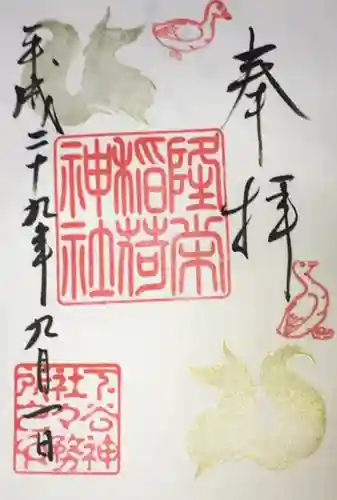 奉拝
隆栄
稲荷
神社
平成二十九年九月一日
下谷神
社々務